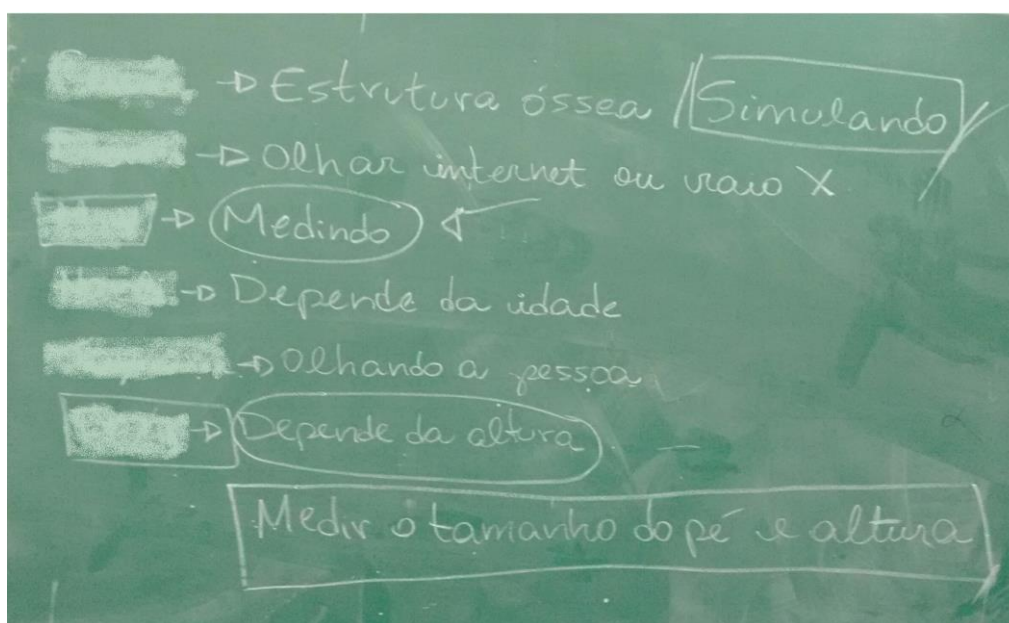 → Estrutura óssea Simulando
→ Olhar internet ou raio X
→ Medindo
→ Depende da idade
→ Olhando a pessoa
→ Depende da altura
Medir o tamanho do pé e altura